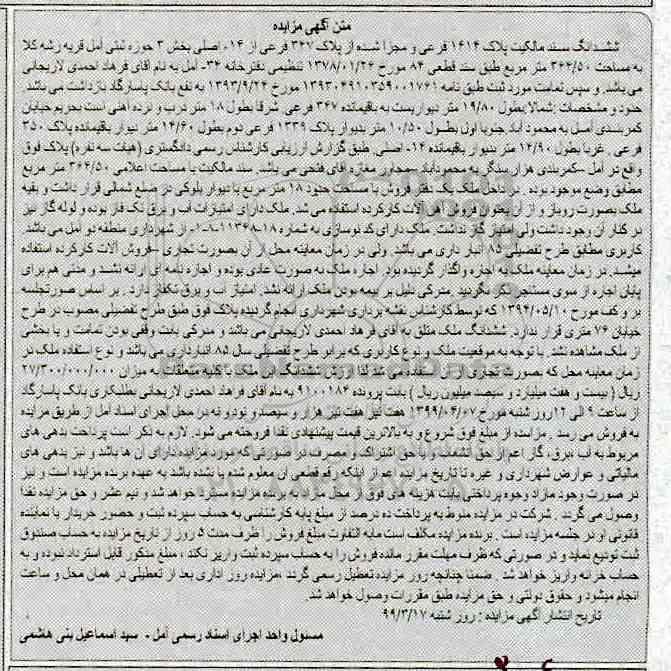 متن آگهی مزایده
ششدانگ سند مالکیت پلاک ۱۶۱۴ فرعی و مجزا شده از پلاک ۳۴۷ فرعی از ۱۴- اصلی بخش ۳ حوزه ثبتی آمل قریه رشه کلا
به مساحت ۳۶۴/۵۰ متر مربع طبق سند قطعی ۸۴ مورخ ۱۳۷۸/۰۱/۲۶ تنظیمی دفترخانه ۳۴- آمل به نام آقای فرهاد احمدی لاریجانی
می باشد. و سپس تمامت مورد ثبت طبق نامه ۱۳۹۳۰۴۹۱۰۳۵۹۰۰۱۷۶۱ مورخ ۱۳۹۳/۹/۲۴ به نفع بانک پاسارگاد بازداشت می باشد.
حدود و مشخصات :شمالا:بطول ۱۹/۸۰ متر دیواریست به باقیمانده ۳۴۷ فرعی شرقا بطول ۱۸ متر درب و نرده آهنی است بحریم خیابان
کمربندی آمل به محمود آباد جنوبا اول بطول ۱۰/۵۰ متر بدیوار پلاک ۱۳۳۹ فرعی دوم بطول ۱۴/۶۰ متر دیوار باقیمانده پلاک ۳۵۰
فرعی . غربا بطول ۱۴/۹۰ متر بدیوار باقیمانده ۱۴- اصلی. طبق گزارش ارزیابی کارشناس رسمی دادگستری (هیات سه نفره) پلاک فوق
واقع در آمل –کمربندی هزار سنگر به محمودآباد –مجاور مغازه آقای فتحی می باشد. سند مالکیت با مساحت اعلامی ۳۶۴/۵۰ متر مربع
مطابق وضع موجود بوده . در داخل ملک یک دفتر فروش با مساحت حدود ۱۸ متر مربع با دیوار بلوکی در ضلع شمالی قرار داشت و بقیه
ملک بصورت روباز و از آن بعنوان فروش آهن آلات کارکرده استفاده می شد. ملک دارای امتیازات آب و برق تک فاز بوده و لوله گاز نیز
در کنار آن وجود داشت ولی امتیاز گاز نداشت. ملک دارای کد نوسازی به شماره ۱۸-۱۱۳۶۸-۸-۱- از شهرداری منطقه دو آمل می باشد.
کاربری مطابق طرح تفصیلی ۸۵ انبار داری می باشد. ولی در زمان معاینه محل از آن بصورت تجاری –فروش آلات کارکرده استفاده
میشد. در زمان معاینه ملک به اجاره واگذار گردیده بود. اجاره ملک به صورت عادی بوده و اجاره نامه ای ارائه نشد و مدتی هم برای
پایان اجاره از سوی مستاجر ذکر نگردید .مدرکی دلیل بر بیمه بودن ملک ارائه نشد. امتیاز آب و برق تکفاز دارد . بر اساس صورتجلسه
بر و کف مورخ ۱۳۹۴/۰۵/۱۰ که توسط کارشناس نقشه برداری شهرداری انجام گردیده پلاک فوق طبق طرح تفصیلی مصوب در طرح
خیابان ۷۶ متری قرار ندارد. ششدانگ ملک متلق به آقای فرهاد احمدی لاریجانی می باشد و مدرکی بابت وقفی بودن تمامت و یا بخشی
از ملک مشاهده نشد. با توجه به موقعیت ملک و نوع کاربری که برابر طرح تفصیلی سال ۸۵ انبارداری می باشد و نوع استفاده ملک در
زمان معاینه محل که بصورت تجاری از آن استفاده می شد لذا ارزش ششدانگ ملک با کلیه متعلقات به میزان ۲۷/۳۰۰/۰۰۰/۰۰۰
ریال ( بیست و هفت میلیارد و سیصد میلیون ریال ) بابت پرونده ۹۱۰۰۱۸۴ به نام آقای فرهاد احمدی لاریجانی بطلبکاری بانک پاسارگاد
از ساعت ۹ الی ۱۲روز شنبه مورخ ۱۳۹۹/۰۴/۰۷ هفت تیر هزار و سیصد و نود و نه در محل اجرای اسناد آمل از طریق مزایده
به فروش می رسد . مزایده از مبلغ فوق شروع و به بالاترین قیمت پیشنهادی نقدا فروخته می شود. لازم به ذکر است پرداخت بدهی های
مربوط به آب ،برق، گاز اعم از حق انشعاب و یا حق اشتراک و مصرف در صورتی که مورد مزایده دارای آن ها باشد و نیز بدهی های
مالیاتی و عوارض شهرداری و غیره تا تاریخ مزایده اعم از اینکه رقم قطعی آن معلوم شده یا نشده باشد به عهده برنده مزایده است و نیز
در صورت وجود مازاد وجوه پرداختی بابت هزینه های فوق از محل مازاد به برنده مزایده مسترد خواهد شد و نیم عشر و حق مزایده نقدا
وصول می گردد . شرکت در مزایده منوط به پرداخت ده درصد از مبلغ پایه کارشناسی به حساب سپرده ثبت و حضور خریدار یا نماینده
قانونی او در جلسه مزایده است . برنده مزایده مکلف است مابه التفاوت مبلغ فروش را ظرف مدت ۵ روز از تاریخ مزایده به حساب صندوق
ثبت تودیع نماید و در صورتی که ظرف مهلت مقرر مانده فروش را به حساب سپرده ثبت واریز نکند ، مبلغ مذکور قابل استرداد نبوده و به
حساب خزانه واریز خواهد شد . ضمنا چنانچه روز مزایده تعطیل رسمی گردد ،مزایده روز اداری بعد از تعطیلی در همان محل و ساعت
انجام میشود و حقوق دولتی و حق مزایده طبق مقررات وصول خواهد شد.
تاریخ انتشار آگهی مزایده : روز شنبه ۹۹/۳/۱۷
مسئول واحد اجرای اسناد رسمی آمل - سید اسماعیل بنی هاشمی